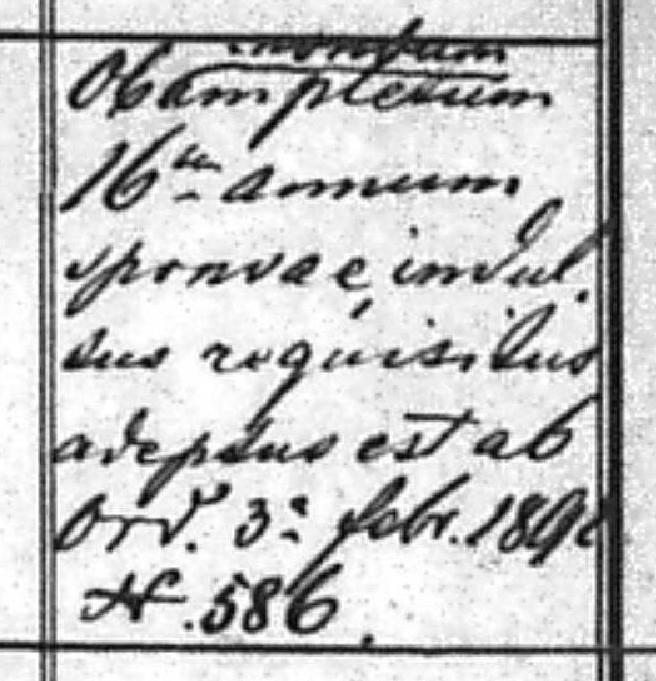 nondum
Ob completum
16um annum
sponsae, indul.
tus requisitus
adeptus est ab
Ord. 3a febr. 189
N. 586.